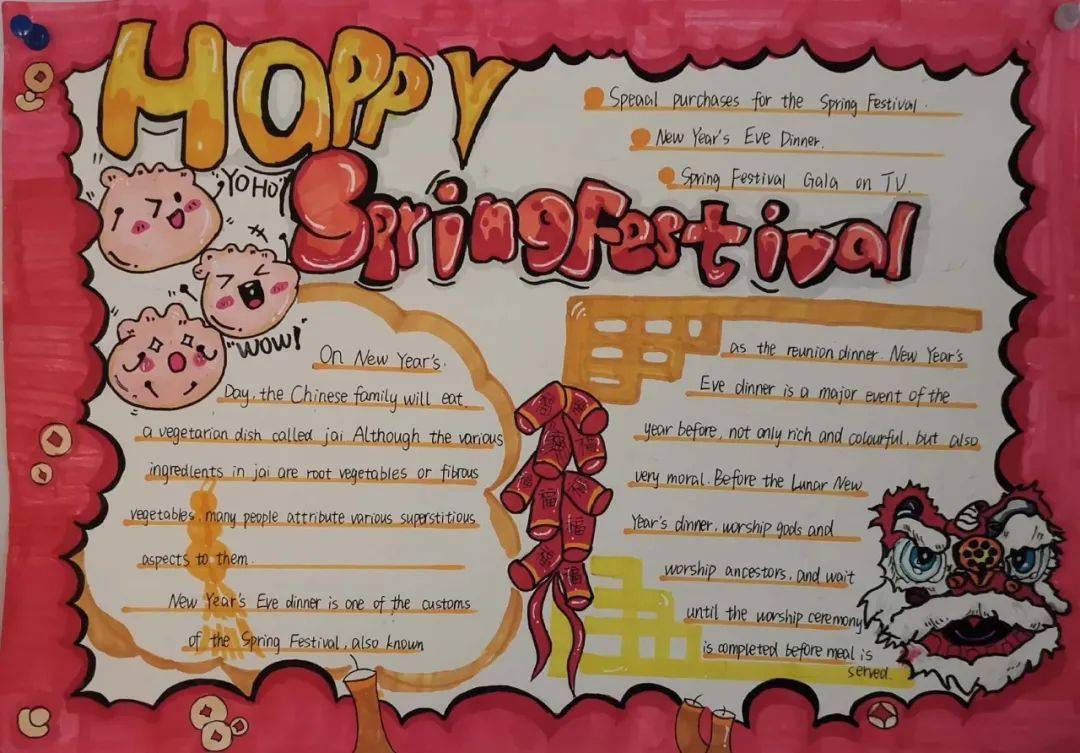 HAPPY
Spring Festival
Speaal purchases for the Spring Festival.
New Year's Eve Dinner.
Spring Festival Gala on TV.
"YOHO"
"WOW!"
On New Year's.
Day, the Chinese family will eat
a vegetarian dish called jai Although the various
ingredients in jai are root vegetables or fibrous
vegetables, many people attribute various superstitious
aspects to them.
New Year's Eve dinner is one of the customs
of the Spring Festival, also known
as the reunion dinner. New Year's
Eve dinner is a major event of the
year before, not only rich and colourful, but also
very moral. Before the Lunar New
Year's dinner, worship gods and
worship ancestors, and wait
until the worship ceremony
is completed before meal is
served.
福
福
福
福
福